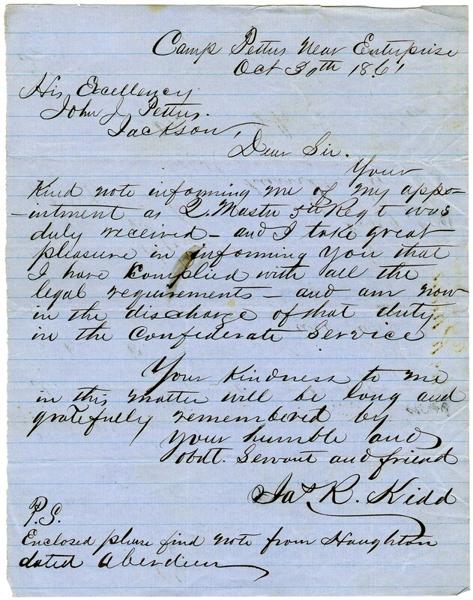 Camp Pettus Near Enterprise
Oct 30th 1861
His Excellency
John J. Pettus.
Jackson,
Dear Sir.
Your
Kind note informing me of my appo-
-intment as Q. Master 5th Regt was
duly received - and I take great
pleasure in informing You that
I have complied with all the
legal requirements - and am now
in the discharge of that duty
in the Confederate Service
Your Kindness to me
in this matter will be long and
gratefully remembered by
your humble and
obdt. Servant and friend
Jas R. Kidd
P.S.
Enclosed please find note from Haughton
dated Aberdeen